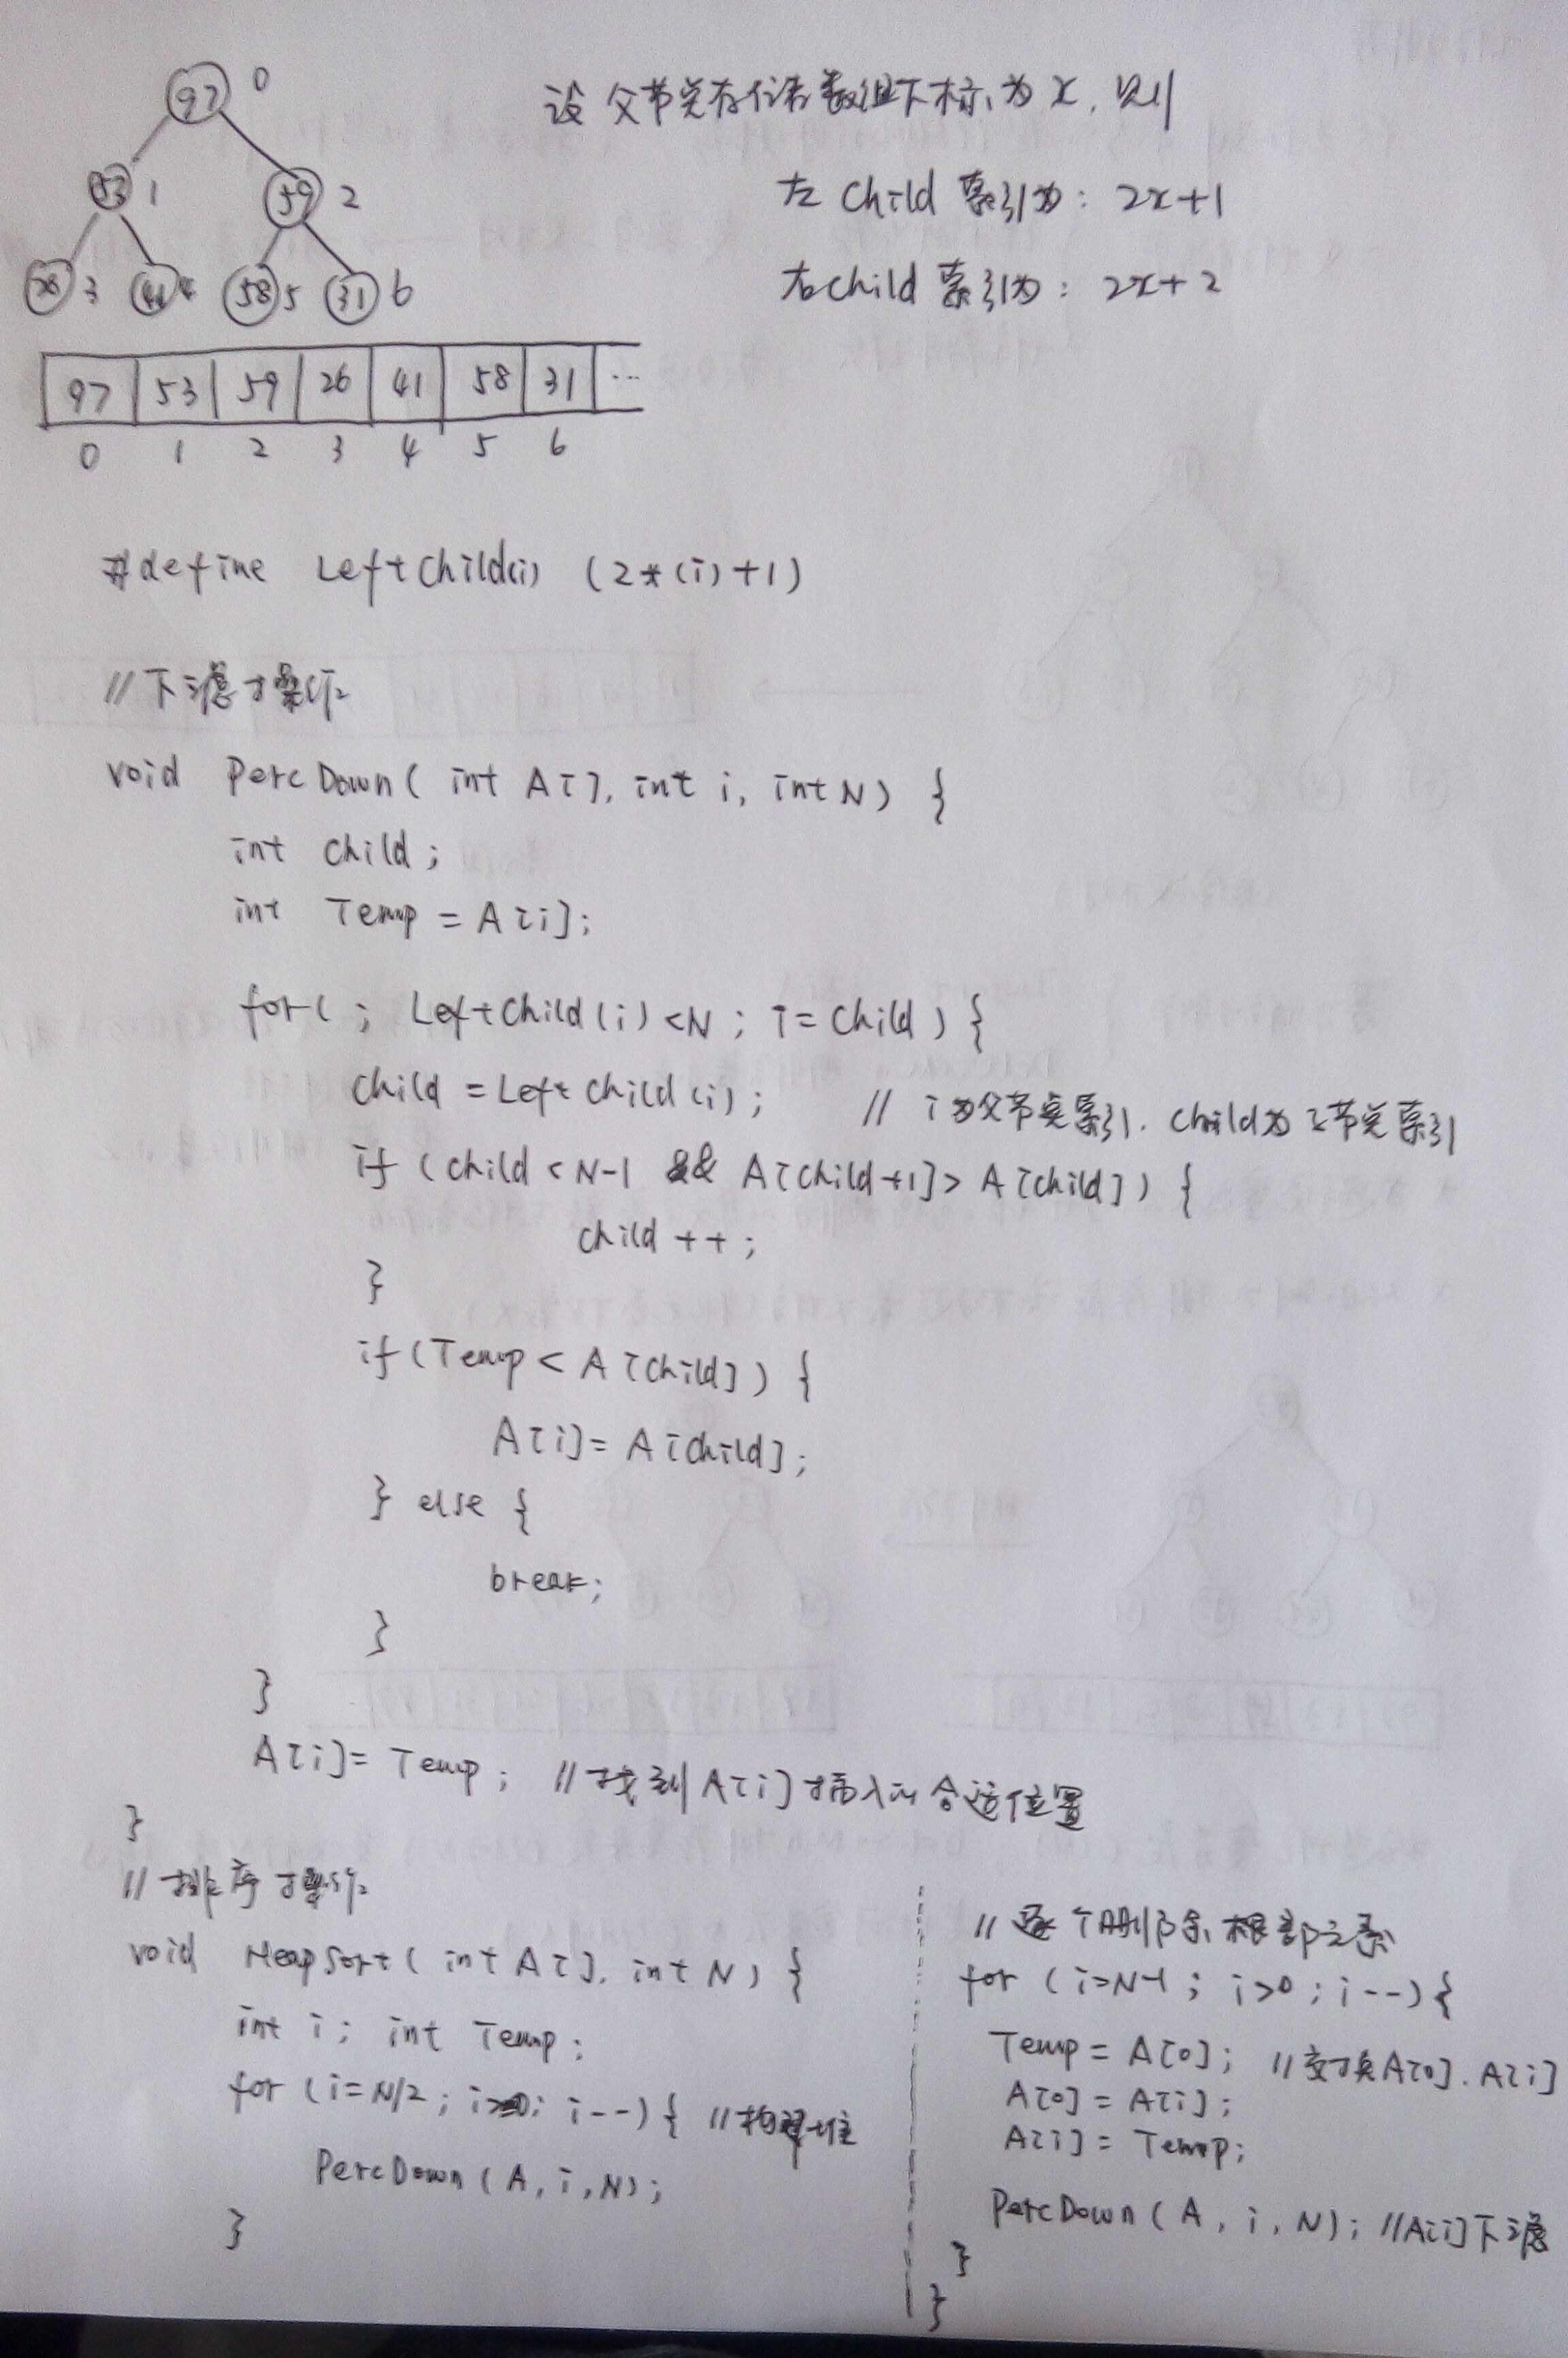 97 0
设父节点存储数组下标为 x, 则
53 1 59 2
左 child 索引为: 2x+1
26 3 41 4 58 5 31 6
右 child 索引为: 2x+2
97 53 59 26 41 58 31 ...
0 1 2 3 4 5 6
#define LeftChild(i) (2*(i)+1)
//下滤操作
void PercDown( int A[], int i, int N) {
int child;
int Temp = A[i];
for( ; LeftChild(i)<N ; i=child ) {
child = LeftChild(i); // i为父节点索引, child为子节点索引
if (child < N-1 && A[child+1] > A[child]) {
child ++;
}
if(Temp < A[child]) {
A[i]= A[child];
} else {
break;
}
}
A[i]= Temp; //找到A[i]插入的合适位置
}
//排序操作
void HeapSort( int A[], int N) {
int i; int Temp;
for (i=N/2; i>0; i--) { //构建堆
PercDown(A, i, N);
}
//逐个删除根部元素
for (i=N-1; i>0; i--){
Temp = A[0]; //交换A[0], A[i]
A[0] = A[i];
A[i] = Temp;
PercDown(A, i, N); //A[i]下滤
}
}